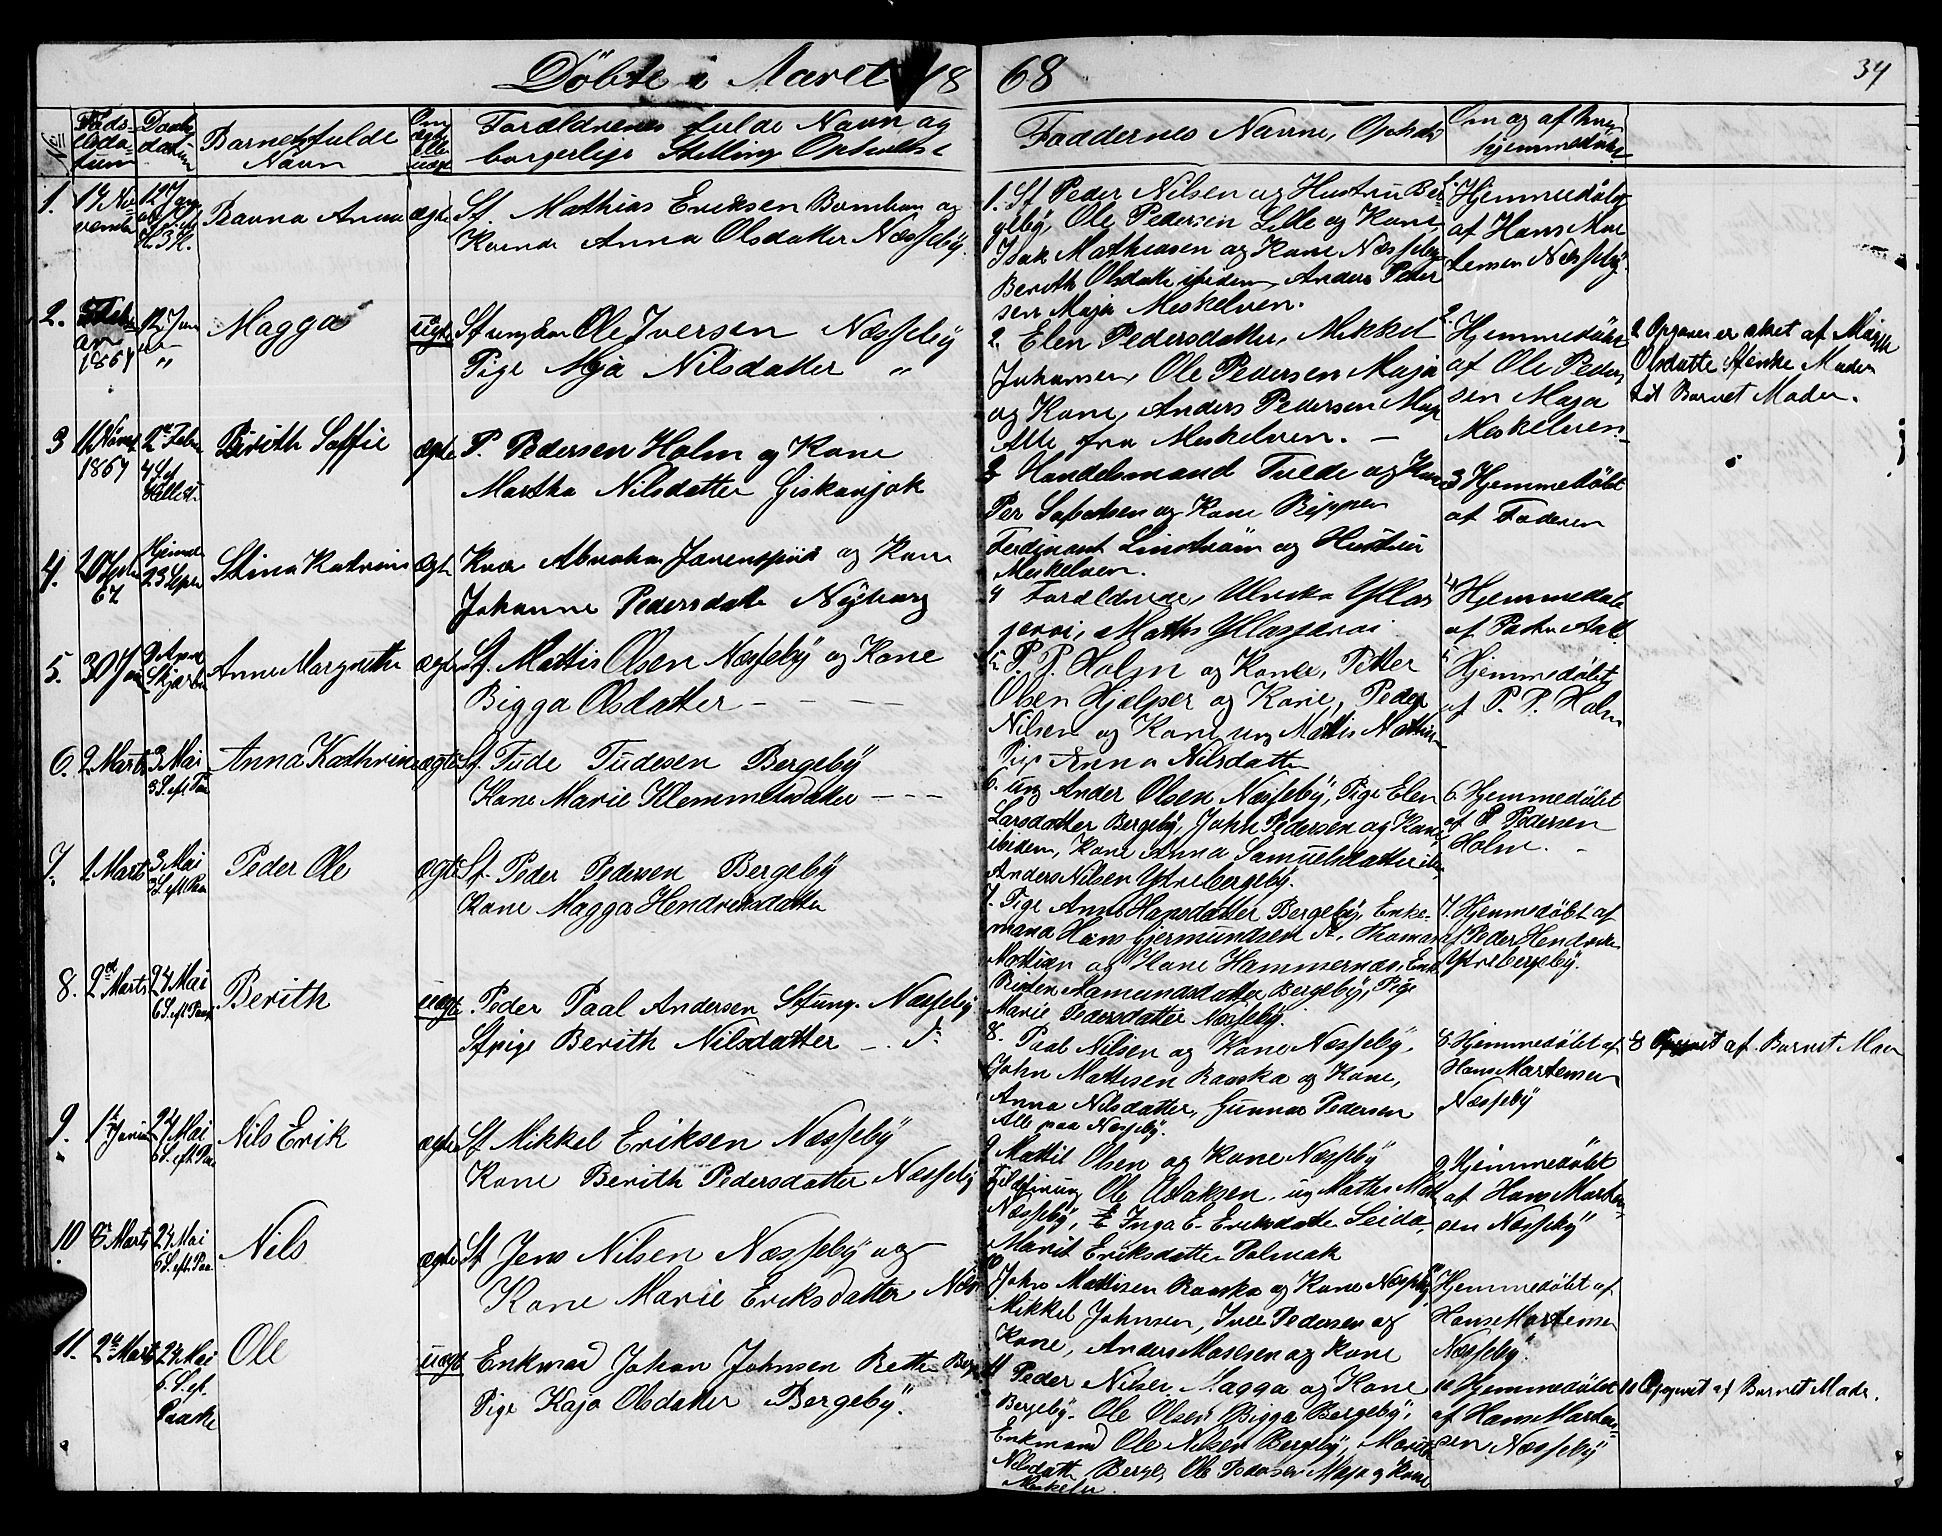 Döbte i Aaret 1868
34
No
Föds-
elsda-
tum
Daabs
datum
Barnets fulde
Navn
Om
ægte
eller
uægte
Forældrenes fulde Navn og
borgerlige Stilling Opholdst
Faddernes Navne, Ophold
Om og af hvem
hjemmedöbt
1. 14 No-
vember
12 Jan
Ravna Anna ægte Sf. Mathias Eriksen Bomban og
Kvinde Anna Olsdatter Næsseby.
1. Sf Peder Nilsen og Hustru Ber-
geby, Ole Pedersen Lille og Kone
Isak Mathiasen og Kone Næsseby
Berith Olsdatt ibidem Anders Peder
sen Maja Meskelven.
1. Hjemmedöbt
af Hans Mor
tensen Næsseby.
2.
1867
12 Jan
"
Magga uægte Sf ung Ole Iversen Næsseby
Pige Maja Nilsdatter "
2. Elen Pedersdatter, Mikkel
Johansen, Ole Pedersen Maja
og Kone, Anders Pedersen Maja
Alle fra Meskelven. —
2. Hjemmedöbt
af Ole Peder
sen Maja
Meskelven
2 Opgiver er skeet af Magga
Olsdatte Moder
til Barnet Moder.
3 11 Novbr
1867
2den Febr
Berith Soffie ægte P. Pedersen Holm og Kone
Martha Nilsdatter Giskanjok
3 Handelsmand Tvede og Kone
Per og Kone Rippen
Ferdinant Linström og Hustru
Meskelven.
3 Hjemmedöbt
af Faderen
4. 20 Septr
67
Hjemme
23 Septr
Stina Katrina ægte Kvæn Abraham og Kone
Johanne Pedersdatter Nyborg
4 Forældrene, Ulrika Yllas
jærvi, Matts Yllasjærvi
4 Hjemmedöbt
af
5. 30 Jan
9 April
Skjærtor
Anne Margrethe ægte Sf. Mattis Olsen Næsseby og Kone
Bigga Olsdatter — — — —
5 P. P. Holm og Kone, Petter
Olsen Hjelper og Kone, Peder
Nilsen og Kone ung Mattis Mattisn
Pige Anna Nilsdatter
5 Hjemmedöbt
af P. P. Holm
6. 2 Marts
3 Mai
3 S. eft Paa
Anna Kathrine ægte Sf. Tude Tudesen Bergeby
Kone Marie Klemmetsdatter — — —
6. ung Ander Olsen Næsseby, Pige Elen
Larsdatter Bergeby, John Pedersen og Kone
ibidem, Kone Anna Samuelsdatter ibi
Anders Nilsen Ytrebergeby.
6. Hjemmedöbt
af P Pedersen
Holm.
7. 1 Marts
3 Mai
3 S. eft Paa
Peder Ole ægte Sf. Peder Pedersen Bergeby
Kone Magga Hendriksdatter
7. Pige Anne Hansdatter Bergeby, Enke-
mand Hans Gjermundsen N., Thomas
Mattisen og Kone Hammernæs, Enke
Kristen Aamundsdatter Bergeby, Pige
Marie Pedersdatter Næsseby.
7. Hjemmedöbt af
Peder Hendriks
Ytrebergeby.
8. 2den Marts
24 Mai
6 S. eft Paask
Berith uægte Peder Paal Andersen Sf ung. Næsseby
Sf pige Berith Nilsdatter — .
8. Paal Nilsen og Kone Næsseby,
John Mattisen Raaska og Kone,
Anna Nilsdatter, Gunnar Pedersen
Alle paa Næsseby.
8 Hjemmedöbt af
Hans Mortensen
Næsseby
8 Opgivet af Barnet Moer
9.
24 Mai
6 S. eft Paa
Nils Erik ægte Sf Mikkel Eriksen Næsseby
Kone Berith Pedersdatter Næsseby
9 Mattis Olsen og Kone Næsseby
Ole Aslaksen, ug Mattis Matt
Næsseby, Inga E. Eriksdatter Seida,
Marit Eriksdatter Polmak
9 Hjemmedöbt
af Hans Morten-
sen Næsseby
10 8 Marts
24 Mai
6 S. eft. Paa
Nils ægte Sf Jens Nilsen Næsseby og
Kone Marie Eriksdatter Næss
10 John Mattisen Raaska og Kone Næsseby
Mikkel Johnsen, Iver Pedersen og
Kone, Anders Mosesen og Kone
10 Hjemmedöbt af
Hans Mortensen
Næsseby.
11. 2den Marts
24 Mai
6. S. ef.
Paaske
Ole uægt Enkmad Johan Johnsen Berg
Pige Kaja Olsdatter Bergeby.
11 Peder Nilsen Magga og Kone
Bergeby. Ole Olsen Bigga Bergeby,
Enkmand Ole Nilsen Bergeby, Marith
Nilsdatte Berge, Ole Pedersen Maja og Kone
Meskelv.
11 Hjemmedöbt
af Hans Morten-
sen Næsseby
11 Opgivet af Barnet Mode.